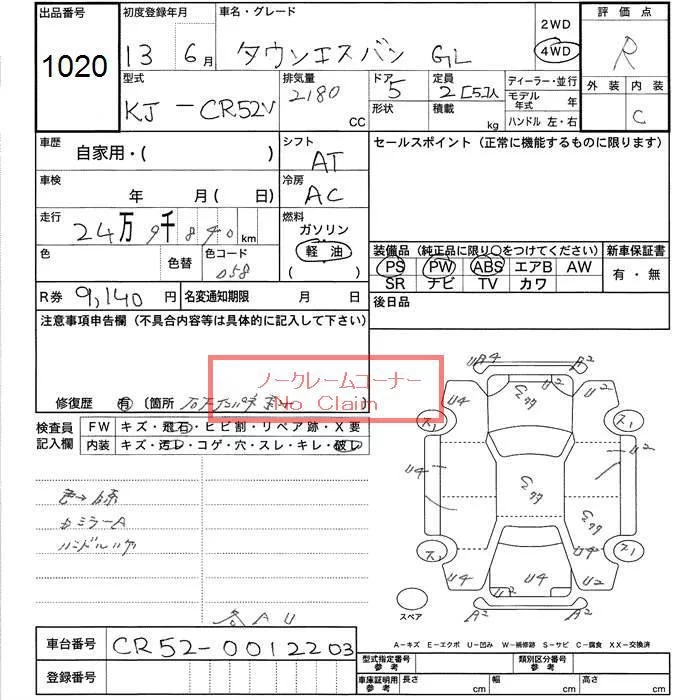 出品番号 初度登録年月 車名・グレード 2WD 評価点
1020 13 6月 タウンエースバン GL 4WD R
型式 排気量 ドア 定員 ディーラー・並行 外装 内装
KJ-CR52V 2180 CC 5 2[5]人 モデル年式 年 C
形状 積載 kg ハンドル 左・右
車歴 シフト セールスポイント (正常に機能するものに限ります)
自家用・( ) AT
車検 冷房
年 月( 日) AC
走行 燃料
24万9千840km ガソリン
色 色替 色コード 軽油 装備品 (純正品に限り○をつけてください) 新車保証書
058 ( ) PS PW ABS エアB AW 有・無
SR ナビ TV カワ
R券 9,140円 名変通知期限 月 日 後日品
注意事項申告欄 (不具合内容等は具体的に記入して下さい)
ノークレームコーナー
No Claim
修復歴 有 〔箇所
検査員記入欄 FW キズ・飛石・ヒビ割・リペア跡・X要
内装 キズ・汚レ・コゲ・穴・スレ・キレ・破レ
A4 A2
U4 U2 U4 U2
ス1 ス1
U4 U2
ス1 ス1
U4 U2 U4 U4 U2
A2 A2
スペア
カミラーA
ハンドルハゲ
各AU
A-キズ E-エクボ U-凹み W-補修跡 S-サビ C-腐食 XX-交換済
車台番号 CR52-0012203
登録番号
型式指定番号参考 類別区分番号参考
車庫証明用参考 長さ cm 幅 cm 高さ cm